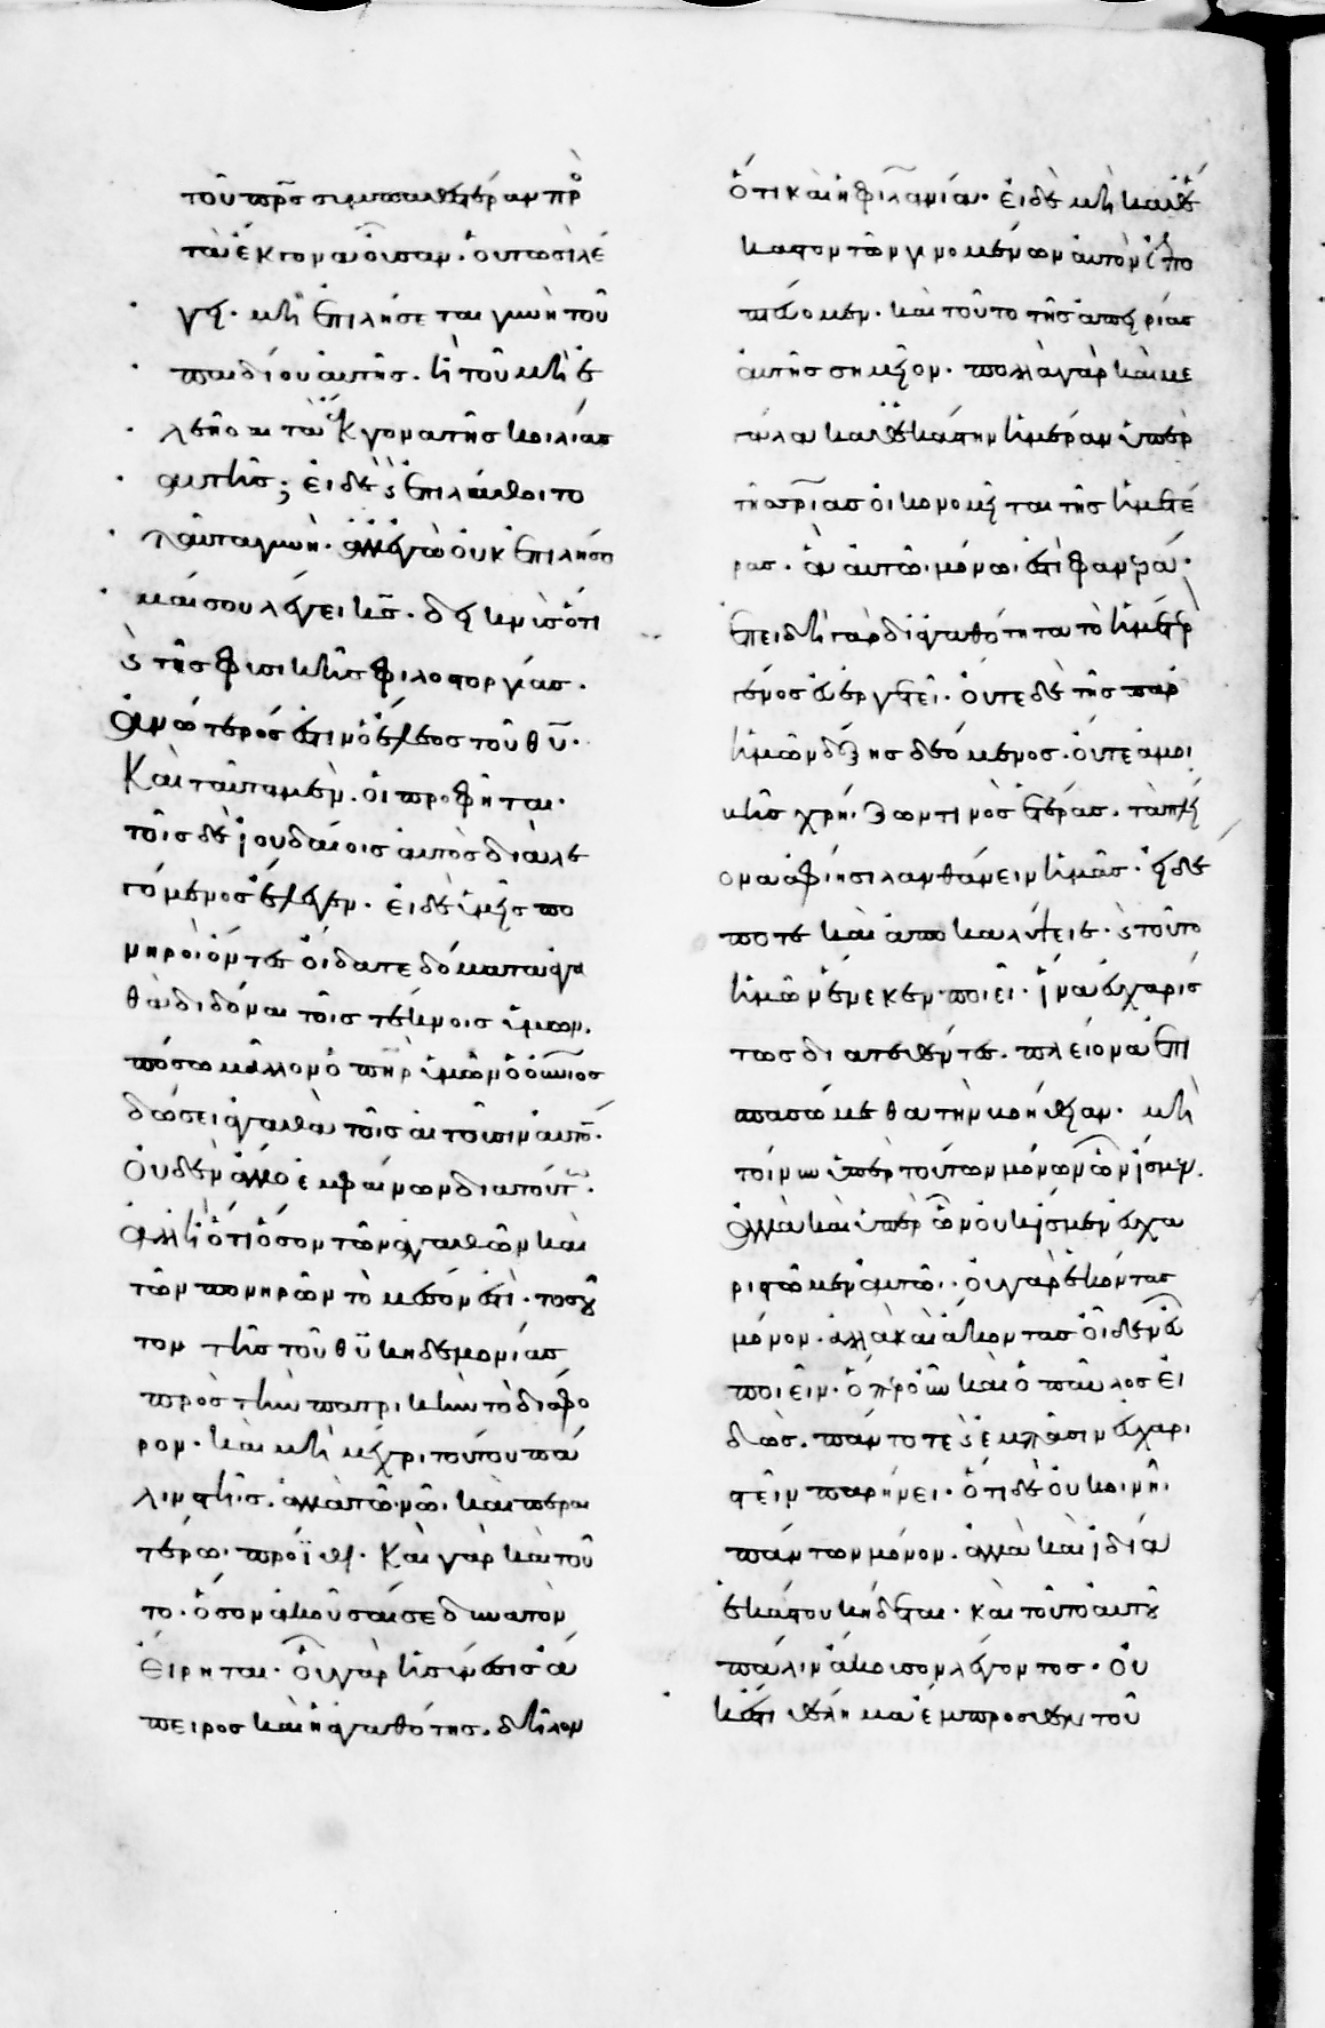 τοῦ πρς συμπαθεστέραν πρὸ
τὰ ἔκγονα οὖσαν. οὑτωσὶ λέ
γει. μὴ ἐπιλήσεται γυνὴ τοῦ
παιδίου αὐτῆς. ἢ τοῦ μὴ ἐ
λεῆσαι τὰ ἔκγονα τῆς κοιλίας
αὐτῆς; εἰ δὲ καὶ ἐπιλάθοιτο
ταῦτα γυνὴ. ἀλλ' ἐγὼ οὐκ ἐπιλήσο
μαί σου λέγει κς. δεικνὺς ὅτι
καὶ τῆς φυσικῆς φιλοστοργίας.
ἀνώτερός ἐστιν ὁ ἔλεος τοῦ θυ.
Καὶ ταῦτα μὲν. οἱ προφῆται.
τοῖς δὲ ἰουδαίοις αὐτὸς διαλε
γόμενος ἔλεγεν. εἰ δὲ ὑμεῖς πο
νηροὶ ὄντες οἴδατε δόματα ἀγα
θὰ διδόναι τοῖς τέκνοις ὑμῶν.
πόσω μᾶλλον ὁ πηρ ὑμῶν ὁ οὐνιος
δώσει ἀγαθὰ τοῖς αἰτοῦσιν αὐτὸν.
Οὐδὲν ἄλλο ἐμφαίνων διὰ τούτου.
ἀλλ' ἢ ὅτι ὅσον τῶν ἀγαθῶν καὶ
τῶν πονηρῶν τὸ μέσον ἐστὶ. τοσοῦ
τον τῆς τοῦ θυ κηδεμονίας
πρὸς τὴν πατρικὴν τὸ διάφο
ρον. καὶ μὴ μέχρι τούτου πά
λιν στῆς. ἀλλὰ τῶ νῶ. καὶ περαι
τέρω πρόϊθι. Καὶ γὰρ καὶ τοῦ
το. ὅσον ἀκοῦσαί σε δυνατὸν
εἴρηται. Οὗ γὰρ ἡ σύνεσις ἄ
πειρος καὶ ἡ ἀγαθότης. δῆλον
ὅτι καὶ ἡ φιλανία. εἰ δὲ μὴ καθ' ἕ
καστον τῶν γινομένων αὐτὸν ἐπο
πτεύομεν. καὶ τοῦτο τῆς ἀπειρίας
αὐτῆς σημεῖον. πολλὰ γὰρ καὶ με
γάλα καθ' ἑκάστην ἡμέραν ὑπὲρ
τῆς σρίας οἰκονομεῖται τῆς ἡμετέ
ρας. ἃ αὐτῶ μόνω ἐστὶ φανερά.
Ἐπειδὴ γὰρ δι' ἀγαθότητα τὸ ἡμέτερον
γένος εὐεργετεῖ. οὔτε δὲ τῆς παρ'
ἡμῶν δόξης δεόμενος. οὔτε ἀμοι
βῆς χρήζων τινὸς ἑτέρας. τὰ πλεί
ονα ἀφίησι λανθάνειν ἡμᾶς. εἰ δέ
ποτε καὶ ἀποκαλύπτει. καὶ τοῦτο
ἡμῶν ἕνεκεν ποιεῖ. ἵνα εὐχαρίσ
τως διατεθέντες. πλείονα ἐπι
σπασώμεθα τὴν βοήθειαν. μὴ
τοίνυν ὑπὲρ τούτων μόνων ὧν ἴσμεν.
ἀλλὰ καὶ ὑπὲρ ὧν οὐκ ἴσμεν εὐχα
ριστῶμεν αὐτῶ. οὐ γὰρ ἑκόντας
μόνον. ἀλλὰ καὶ ἄκοντας οἶδεν εὖ
ποιεῖν. ὅπερ οὖν καὶ ὁ παῦλος εἰ
δὼς. πάντοτε καὶ ἐν πᾶσιν εὐχαρι
στεῖν παρήνει. ὅτι δὲ οὐ κοινῆ
πάντων μόνον. ἀλλὰ καὶ ἰδία
ἑκάστου κήδεται. καὶ τοῦτο αὐτοῦ
πάλιν ἄκουσον λέγοντος. Οὐ
κ ἔστι θέλημα ἔμπροσθεν τοῦ